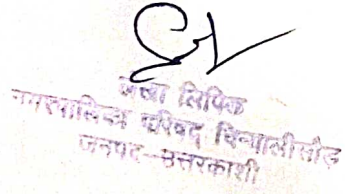 लिपिक
नगरपालिका परिषद चिन्यालीसौड़
जनपद-उत्तरकाशी